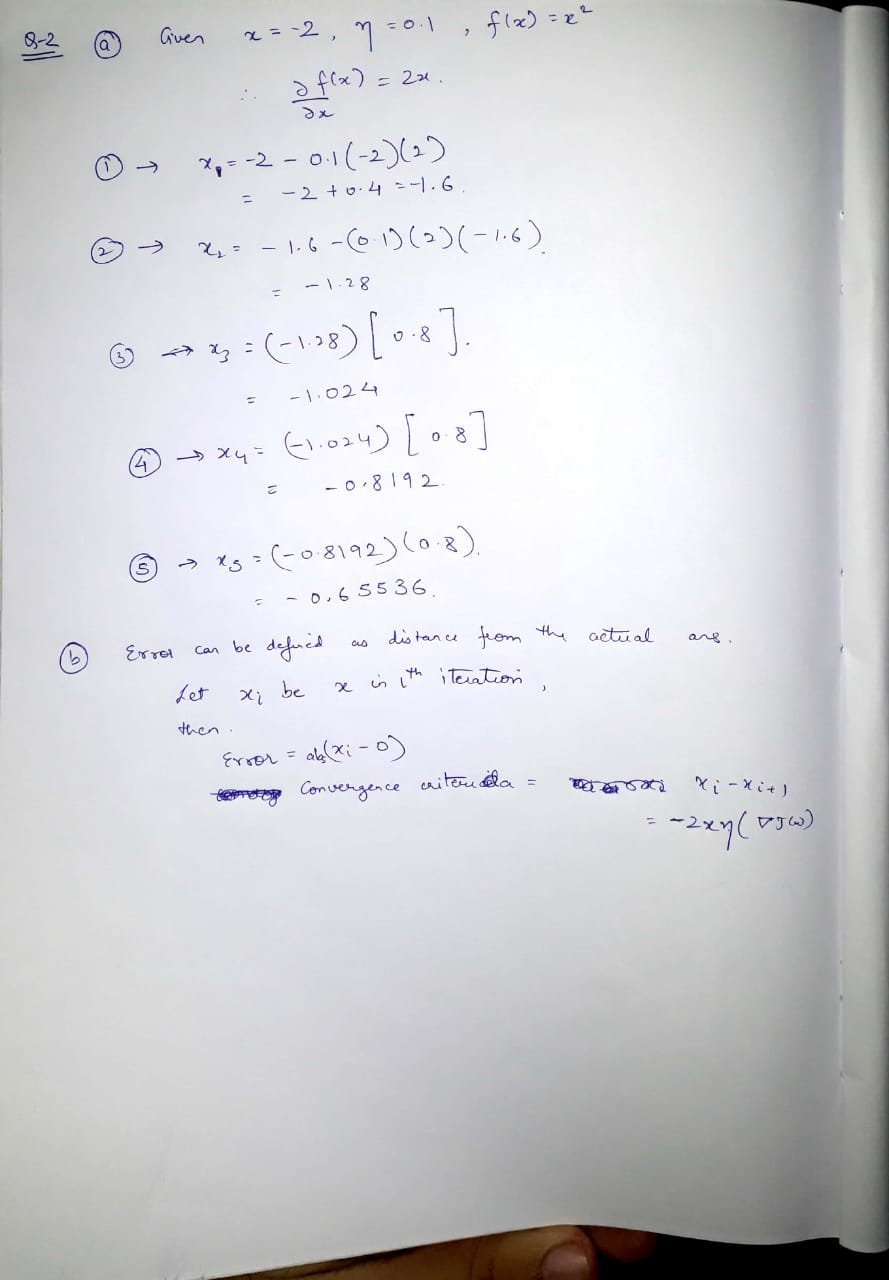 Q-2 (a) Given x = -2, η = 0.1, f(x) = x²
∴ ∂f(x)/∂x = 2x.
(1) → x₁ = -2 - 0.1(-2)(2)
= -2 + 0.4 = -1.6.
(2) → x₂ = -1.6 - (0.1)(2)(-1.6).
= -1.28
(3) → x₃ = (-1.28)[0.8].
= -1.024
(4) → x₄ = (-1.024)[0.8]
= -0.8192.
(5) → x₅ = (-0.8192)(0.8).
= -0.65536.
(b) Error can be defined as distance from the actual ans.
Let xi be x in ith iteration,
then.
Error = abs(xi - 0)
Convergence criteria = xi - xi+1
= -2xη(∇J(ω))